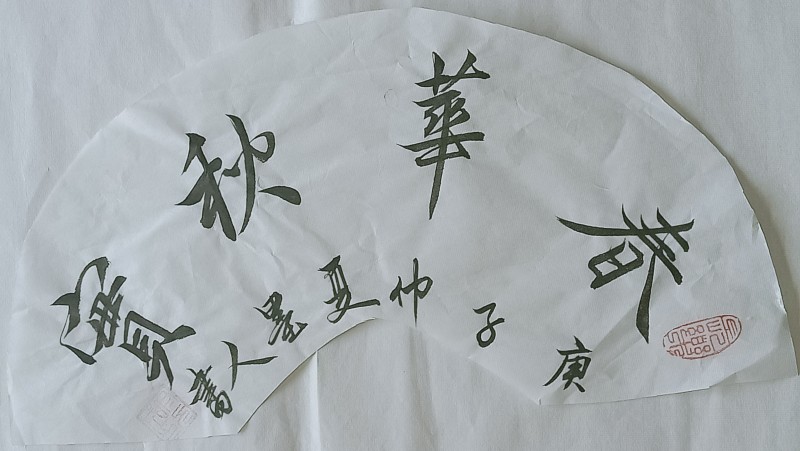 春華秋實
庚子仲夏墨人書